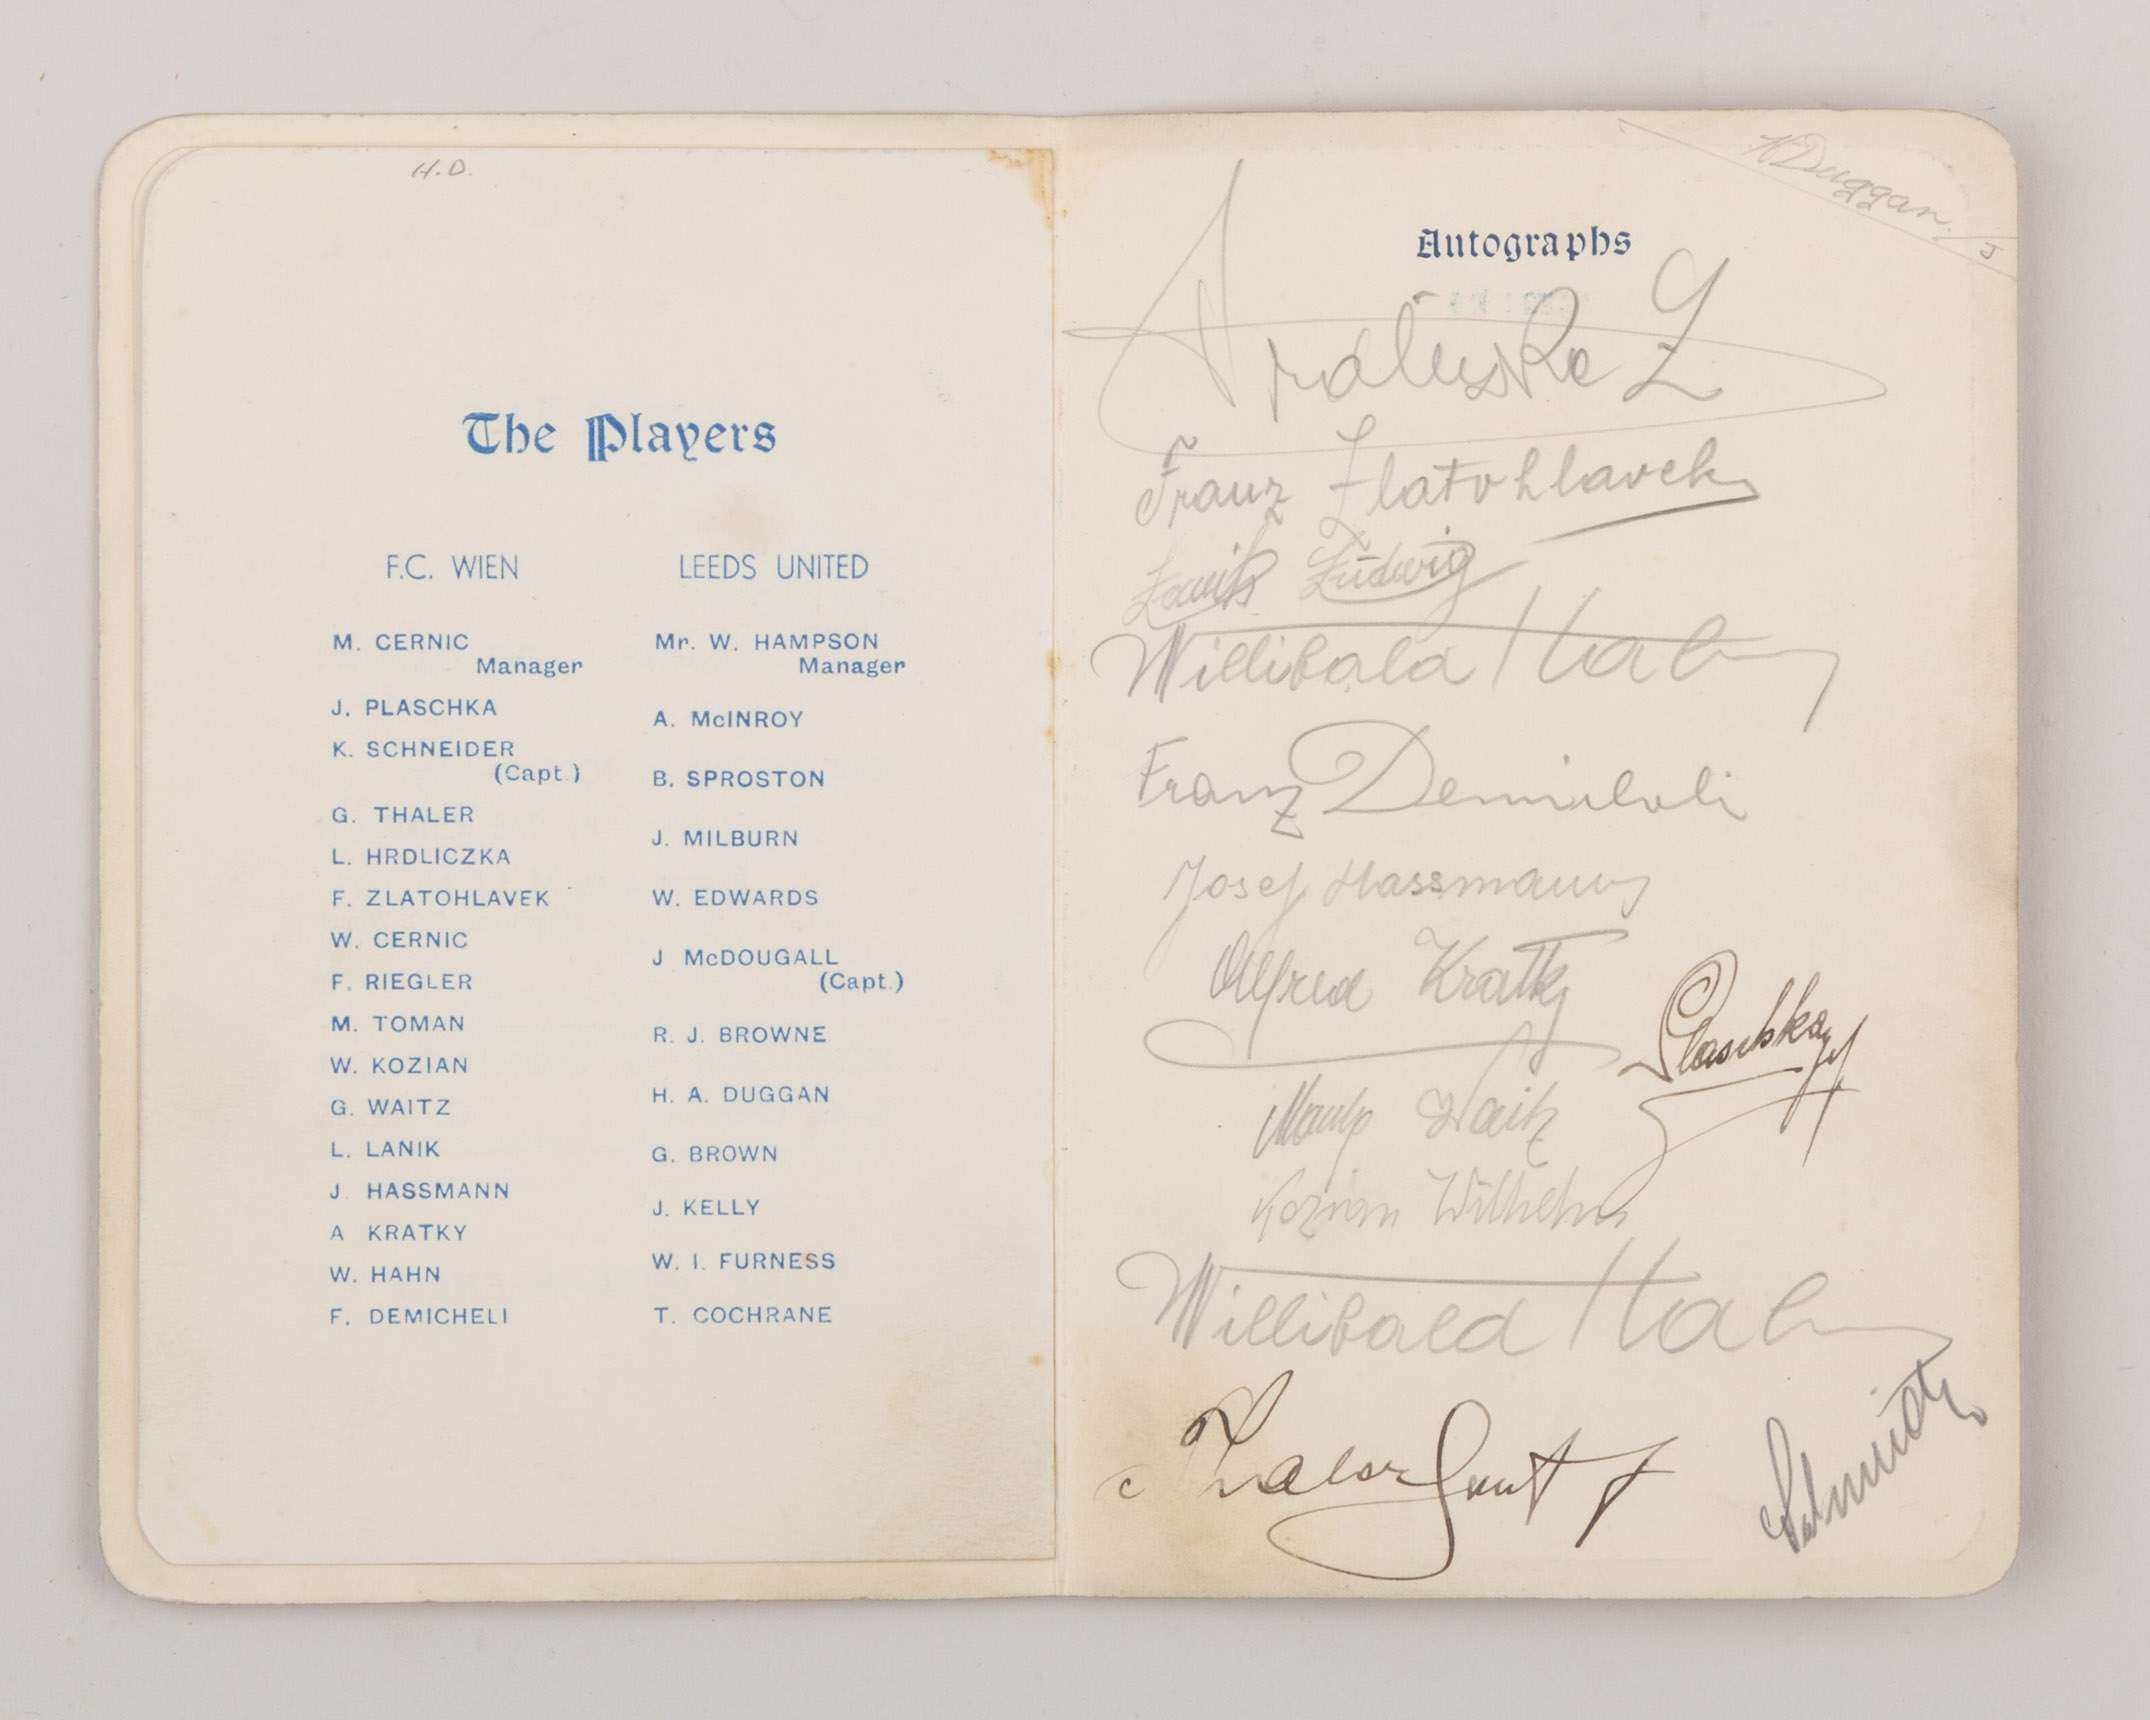 H.D.
The Players
F.C. WIEN
M. CERNIC
Manager
J. PLASCHKA
K. SCHNEIDER
(Capt.)
G. THALER
L. HRDLICZKA
F. ZLATOHLAVEK
W. CERNIC
F. RIEGLER
M. TOMAN
W. KOZIAN
G. WAITZ
L. LANIK
J. HASSMANN
A KRATKY
W. HAHN
F. DEMICHELI
LEEDS UNITED
Mr. W. HAMPSON
Manager
A. McINROY
B. SPROSTON
J. MILBURN
W. EDWARDS
J McDOUGALL
(Capt.)
R. J. BROWNE
H. A. DUGGAN
G. BROWN
J. KELLY
W. I. FURNESS
T. COCHRANE
H Duggan
Autographs
Franz Zlatohlavek
Lanik Ludwig
Willibald Hahn
Franz Demicheli
Josef Hassmann
Alfred Kratky
Plaschka
Waitz
Kozian Wilhelm
Willibald Hahn
Thaler
Schmidt